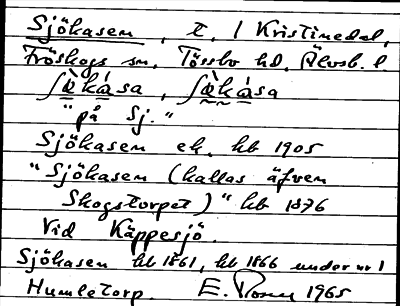 Sjökasen, t. / Kristinedal,
Fröskogs sn, Tössbo hd, Älvsb. l.
ʃö̀kása, ʃö̀kása
"på Sj."
Sjökasen ek. kb 1905
"Sjökasen (kallas äfven
Skogstorpet)" kb 1876
Vid Käppesjö.
Sjökasen kb 1861, kb 1866 under nr 1
Humletorp. E. 1965